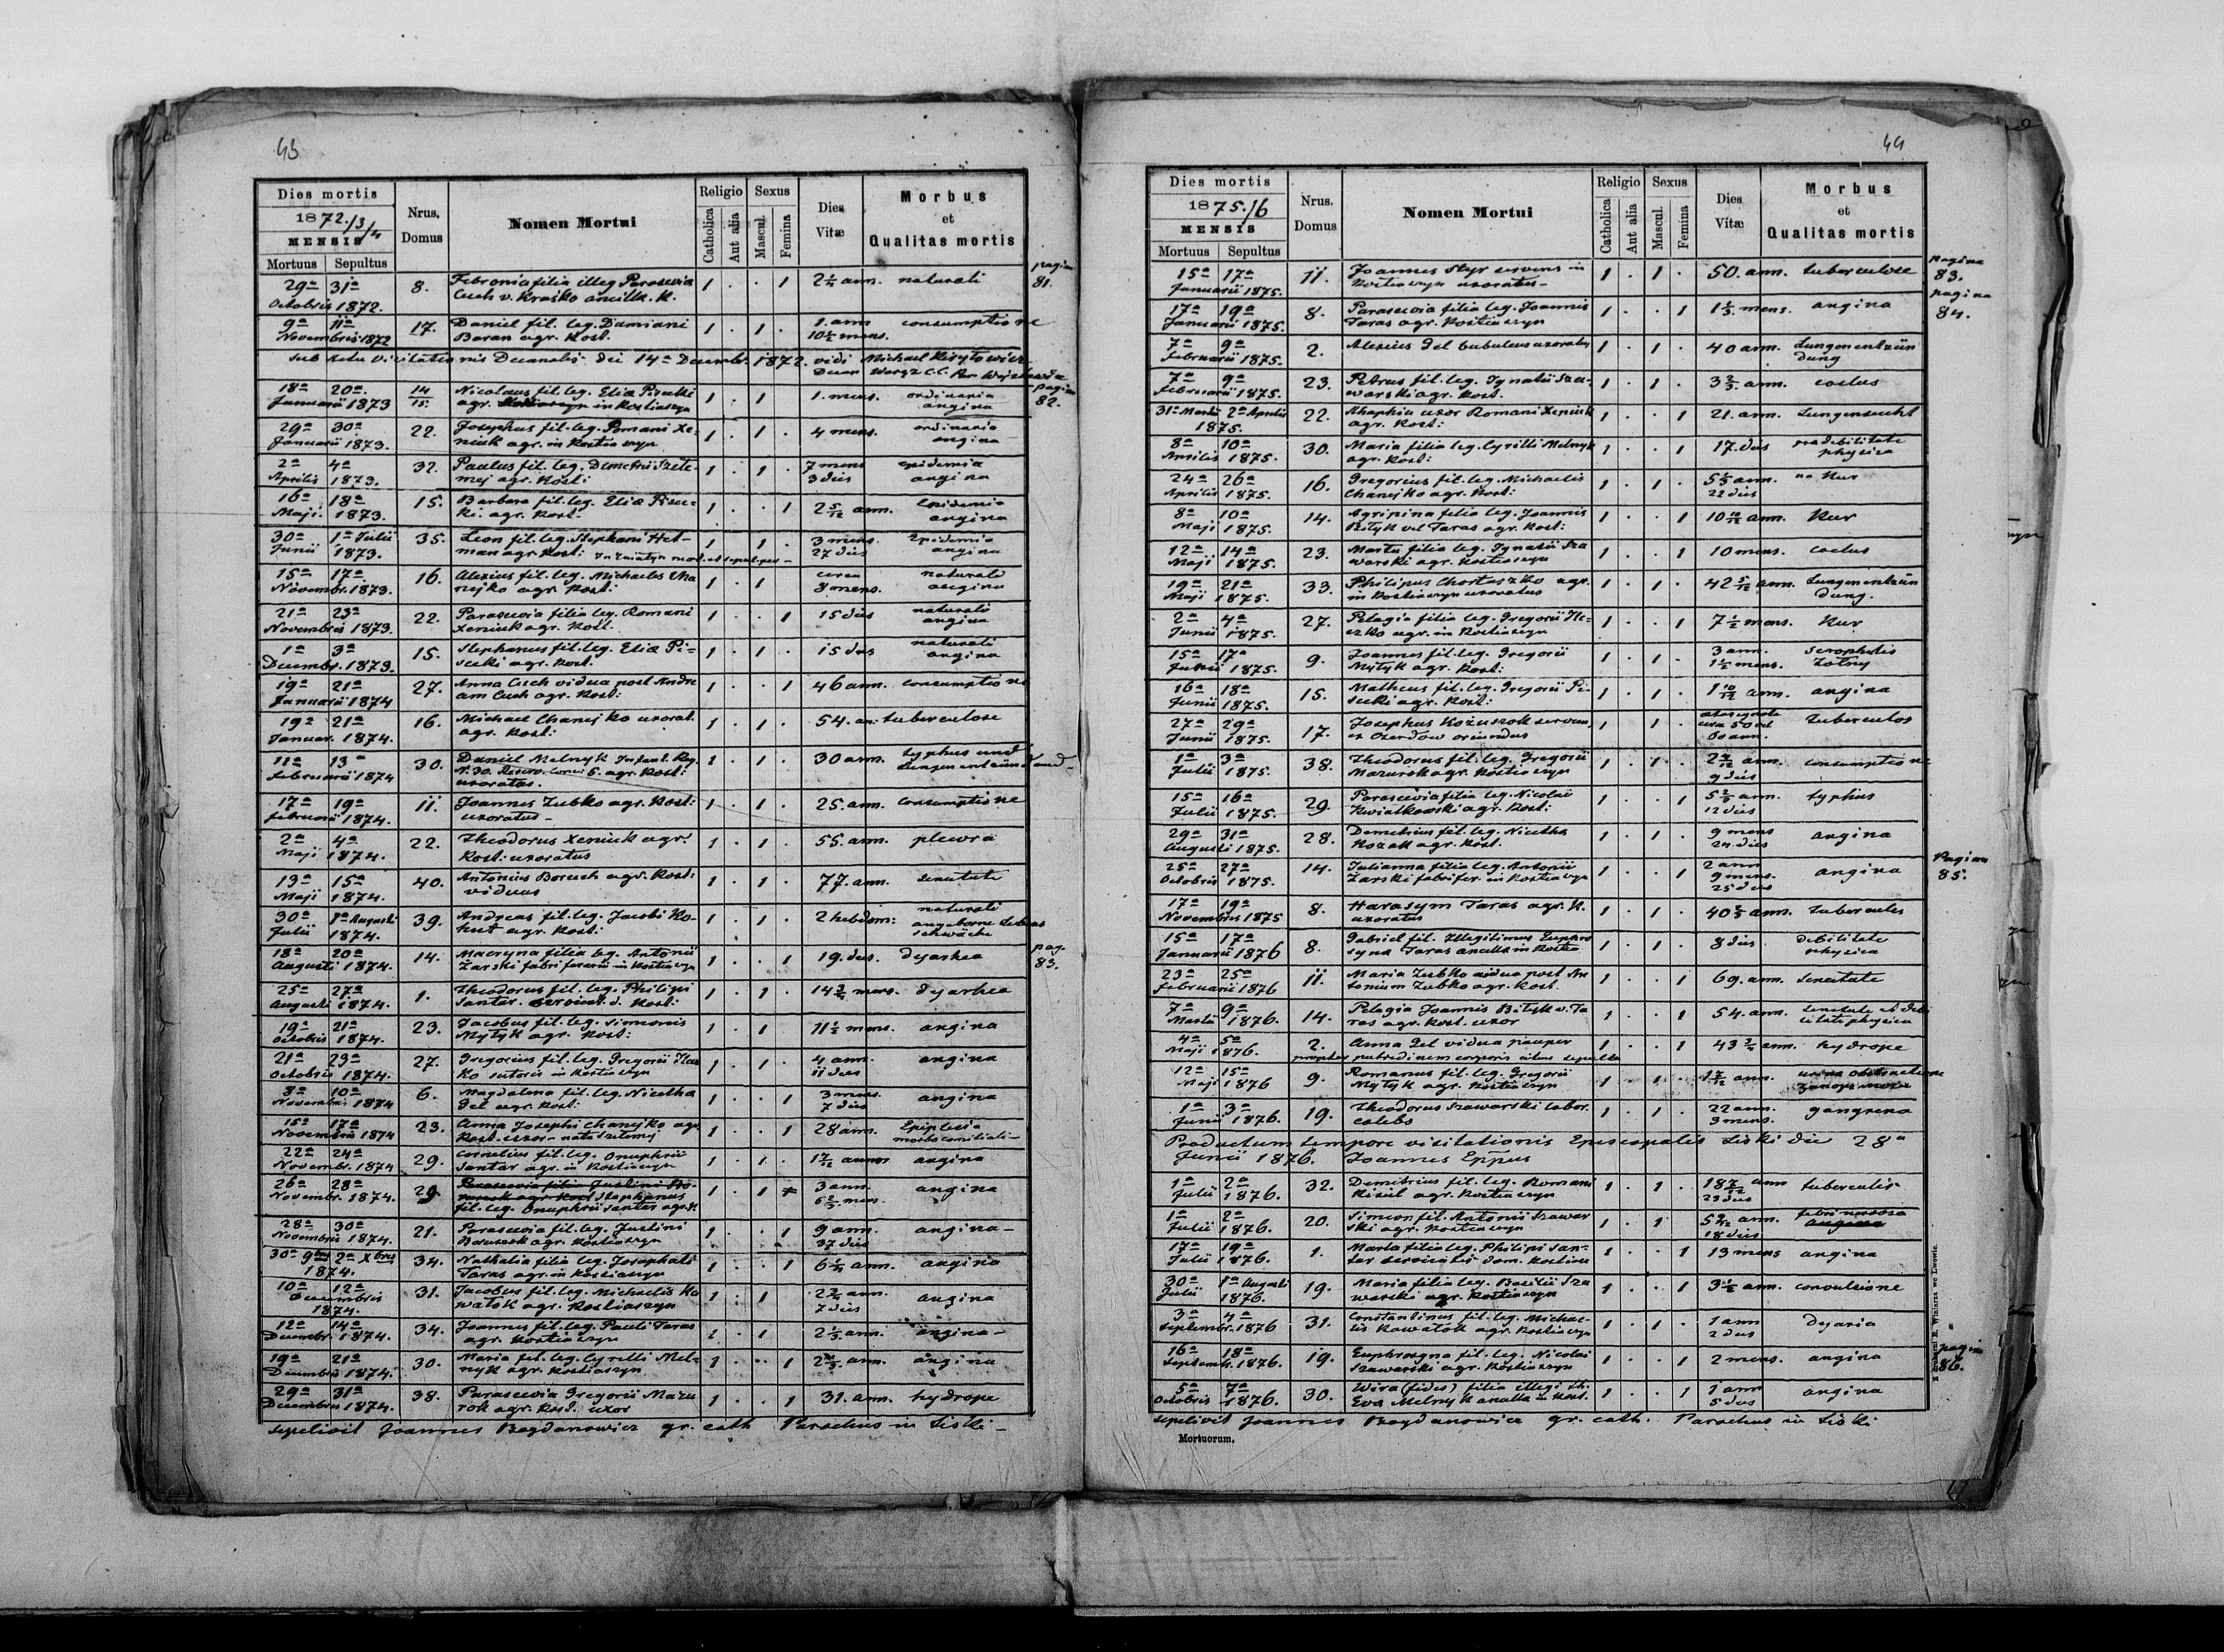 43
Dies mortis
1872./3/4
MENSIS
Mortuus Sepultus
Nrus. Domus
Nomen Mortui
Religio
Catholica
Aut alia
Sexus
Mascul.
Femina
Dies Vitæ
Morbus
et
Qualitas mortis
29a 31a 8. Febronia filia illeg. Parascevia 1 . . 1 2 ann. naturali pagina 81.
Octobris 1872. Cuch v. Kraśko ancilla. K.
9a 11a 17. Daniel fil. leg. Damiani 1 . 1 . 1. ann consumptione
Novembris 1872 Baran agr. Kost. 10½ mens.
sub actu visitationis Decanalis die 14a Decembr. 1872. vidi Michael
18a 20a 14/15. Nicolaus fil. leg. Eliæ Pisecki 1 . 1 1. mens. ordinaria pagina 82.
Januarii 1873 agr. in Kostiaszyn angina
29a 30a 22. Josephus fil. leg. Romani Xe- 1 . 1 . 4 mens. ordinario
Januarii 1873. niuk agr. in Kostiaszyn angina
2a 4a 32. Paulus fil. leg. Demetrii Szele- 1 . 1 . 7 mens epidemia
Aprilis 1873. mej agr. Kost: 3 dies angina
16a 18a 15. Barbara fil. leg. Eliæ Pisec- 1 . . 1 2 5/12 ann. Epidemia
Maji. 1873. ki. agr. Kost. angina
30a 1a Julii 35. Leon fil. leg. Stephani Het- 1 1 . 3 mens. Epidemia
Junii 1873. man agr. Kost: 27 dies angina
15a 17a 16. Alexius fil. leg. Michaelis Cha 1 . 1 . circa naturali
Novembr. 1873. nejko agr. Kost: 8 mens. angina
21a 23a 22. Parascevia filia leg. Romani 1 . . 1 15 dies naturali
Novembris 1873. Xeniuk agr. Kost. angina
1a 3a 15. Stephanus fil. leg. Eliæ Pi- 1 . 1 . 15 dies naturali
Decembr. 1873. secki agr. Kost. angina
19a 21a 27. Anna Cuch vidua post Andre 1 . . 1 46 ann. consumptione
Januarii 1874 am Cuch agr. Kost:
19a 21a 16. Michael Chanejko uxorat. 1 . 1 . 54. an: tuberculose
Januar. 1874. agr. Kost:
11a 13a 30. Daniel Melnyk Infant. Reg. 1 . 1 . 30 ann. typhus und
Februarii 1874 N. 30. agr. Kost: Lungenentzünd
uxoratus.
17a 19a 11. Joannes Zubko agr. Kost: 1 . 1 . 25. ann. consumptione
Februarii 1874. uxoratus -
2a 4a 22. Theodorus Xeniuk agr. 1 . 1 . 55. ann. pleura
Maji 1874. Kost: uxoratus
13a 15a 40. Antonius Boruch agr. Kost: 1 . 1 . 77. ann. senectute
Maji 1874. viduus
30a 1a Augusti 39. Andreas fil. leg. Jacobi Ko- 1 . 1 . 2 hebdom: naturali
Julii 1874. hut agr. Kost: angeborne Lebens
schwäche
18a 20a 14. Macryna filia leg. Antonii 1 . . 1 19. dies. dyarhea pag. 83.
Augusti 1874. Żarski fabri ferarii in Kostiaszyn
25a 27a 1. Theodorus fil. leg. Philipi 1 . 1 . 14 mens. dyarhea
Augusti 1874. Santar. d. Kost:
19a 21a 23. Jacobus fil. leg. Simeonis 1 . 1 11½ mens. angina
Octobris 1874. Mytyk agr. Kost:
21a 23a 27. Gregorius fil. leg. Gregorii 1 . 1 . 4 ann. angina
Octobris 1874. ko sutoris in Kostiaszyn 11 dies
8a 10a 6. Magdalena fil. leg. Nicetha 1 . . 1 3 mens. angina
Novembris 1874 Gel agr. Kost: 7 dies
15a 17a 23. Anna Josephi Chanejko agr. 1 . . 1 28 ann. Epiplesia
Novembris 1874 Kost. uxor - nata Szelemej morbo comitiali -
22a 24a 29. Cornelius fil. leg. Onuphrii 1 . 1 . 1 7/12 annor angina
Novembr. 1874 Santar agr. in Kostiaszyn
26a 28a 29. Parascevia filia Justini Bo- 1 . 1 3 ann. angina
Novembr. 1874. agr. Kost Stephanus 6 mens.
fil. leg. Onuphrii Santar agr. K
28a 30a 21. Parascevia fil. leg. Justini 1 . 1 9 ann. angina -
Novembris 1874. agr. Kostiaszyn 37 dies
30a 9bris 2a Xbris 34. Nathalia filia leg. Josaphati 1 . . 1 6 ann. angina
1874. Taras agr. in Kostiaszyn
10a 12a 31. Jacobus fil. leg. Michaelis Ko 1 . 1 2 ann. angina
Decembris watok agr. Kostiaszyn 7 dies
1874.
12a 14a 34. Joannes fil. leg. Pauli Taras 1 . 1 2 ann. angina -
Decembr. 1874. agr. Kostiaszyn
19a 21a 30. Maria fil. leg. Cyrilli Mel- 1 . . 1 2 ann. angina
Decembris 1874. nyk agr. Kostiaszyn
29a 31a 38. Parascevia Gregorii Mazu 1 . . 1 31. ann. hydrope
Decembris 1874. rok agr. Kost. uxor
sepelivit Joannes Bogdanowicz gr. cath Parochus in Liski -
44
Dies mortis
1875./6
MENSIS
Mortuus Sepultus
Nrus. Domus
Nomen Mortui
Religio
Catholica
Aut alia
Sexus
Mascul.
Femina
Dies Vitæ
Morbus
et
Qualitas mortis
15a 17a 11. Joannes Styr servens in 1 . 1 . 50. ann. tuberculose pagina 83.
Januarii 1875. Kostiaszyn uxoratus -
17a 19a 8. Parascevia filia leg. Joannis 1 . . 1 1 mens. angina pagina 84.
Januarii 1875. Taras agr. Kostiaszyn
7a 9a 2. Alexius Gel bubulcus uxoratus 1 . 1 . 40 ann. Lungenentzün
Februarii 1875. dung
7a 9a 23. Petrus fil. leg. Ignatii Sza- 1 . 1 . 3 ann. coctus
Februarii 1875. warski agr. Kost.
31a Martii 2a Aprilis 22. Khaphia uxor Romani Xeniuk 1 . . 1 21. ann. Lungensucht
1875. agr. Kost:
8a 10a 30. Maria filia leg. Cyrilli Melnyk 1 . . 1 17. dies debilitate
Aprilis 1875. agr. Kost: physica
24a 26a 16. Gregorius fil. leg. Michaelis 1 . 1 . 5 ann. na Kur
Aprilis 1875. Chanejko agr. Kost: 22 dies
8a 10a 14. Agripina filia leg. Joannis 1 . . 1 10 ann. Kur
Maji 1875. Bityk vel Taras agr. Kost:
12a 14a 23. Marta filia leg. Ignatii Sza 1 . . 1 10 mens. coctus
Maji 1875. warski agr. Kostiaszyn
19a 21a 33. Philipus Chortaszko agr. 1 . 1 . 42 5/12 ann. Lungenentzün
Maji 1875. in Kostiaszyn uxoratus dung.
2a 4a 27. Pelagia filia leg. Gregorii 1 . . 1 7½ mens. Kur
Junii 1875. agr. in Kostiaszyn
15a 17a 9. Joannes fil. leg. Gregorii 1 . 1 . 3 ann. scrophulis
1875. Mytyk agr. Kost: 1½ mens. Zołtny
16a 18a 15. Matheus fil. leg. Gregorii Pi- 1 . 1 . 1 10/12 ann. angina
Junii 1875. secki agr. Kost:
27a 29a 17. Josephus Kożuszok servus, 1 . 50 vel tuberculos
Junii 1875. ex Oserdow oriundus 60 ann.
1a 3a 38. Theodorus fil. leg. Gregorii 1 . 1 . 2 ann. consumptione
Julii 1875. Mazurok agr. Kostiaszyn 9 dies
15a 16a 29. Parascevia filia leg. Nicolai 1 . . 1 5 ann. typhus
Julii 1875. Kwiatkowski agr. Kost: 12 dies
29a 31a 28. Demetrius fil. leg. Nicetha 1 . 1 . 9 mens angina
Augusti 1875. Kozak agr. Kost. 24. dies
25a 27a 14. Julianna filia leg. Antonii 1 . . 1 2 ann angina Pagina 85.
Octobris 1875. Żarski fabri fer. in Kostiaszyn 9 mens.
25 dies
17a 19a 8. Harasym Taras agr. K. 1 . 1 . 40 ann. tubercules
Novembris 1875 uxoratus
15a 17a 8. Gabriel fil. Illegitimus Euphro 1 . 1 . 8 dies debilitate
Januarii 1876 syna Taras ancilla in Kostia physica
23a 25a 11. Maria Zubko vidua post An 1 . . 1 69. ann. senectute
Februarii 1876 tonium Zubko agr. Kost.
7a 9a 14. Pelagia Joannis Bityk v. Ta 1 . . 1 54. ann. senectute et debi
Martii 1876. ras agr. Kost. uxor litate physica
4a 5a 2. Anna Gel vidua pauper 1 . . 1 43 ann. hydrope
Maji 1876. propter putredinem corporis citius sepulta
12a 15a 9. Romanus fil. leg. Gregorii 1 . 1 . 1 7/12 ann.
Maji 1876 Mytyk agr. Kostiaszyn
1a 3a 19. Theodorus Szawarski labor. 1 . 1 . 22 ann. gangrena
Junii 1876. celebs 3 mens.
Productum tempore visitationis Episcopalis Liski die 28a
Junii 1876. Joannes Eppus
1a 2a 32. Demitrius fil. leg. Romani 1 . 1 . 18 ann tuberculis
Julii 1876. Kisil agr. Kostiaszyn 23 dies
1a 2a 20. Simeon fil. Antonii Szawar 1 . 1 5 ann. febri nervosa
Julii 1876. ski agr. Kostiaszyn 18 dies
17a 19a 1. Marta filia leg. Philipi San- 1 . . 1 13 mens angina
Julii 1876. tar dom. Kostias
30a 1a Augusti 19. Maria filia leg. Basilii Sza 1 . . 1 3½ ann. convulsione
Julii 1876. warski agr. Kostiaszyn
3a 4a 31. Constantinus fil. leg. Michae- 1 . 1 . 1 ann dyaria
Septembr. 1876 lis Kowatok agr. Kostiaszyn 2 dies
16a 18a 19. Euphrosyna fil. leg. Nicolai 1 . . 1 2 mens. angina pagina 86.
Septembr. 1876. Szawarski agr. Kostiaszyn
5a 7a 30. Wira (fides) filia illegitti. 1 . . 1 1 ann angina
Octobris 1876. Eva Melnyk ancilla in Kost. 5 dies
sepelivit Joannes Bogdanowicz gr. cath. Parochus in Liski
Mortuorum.
Z drukarni E. Winiarza we Lwowie.